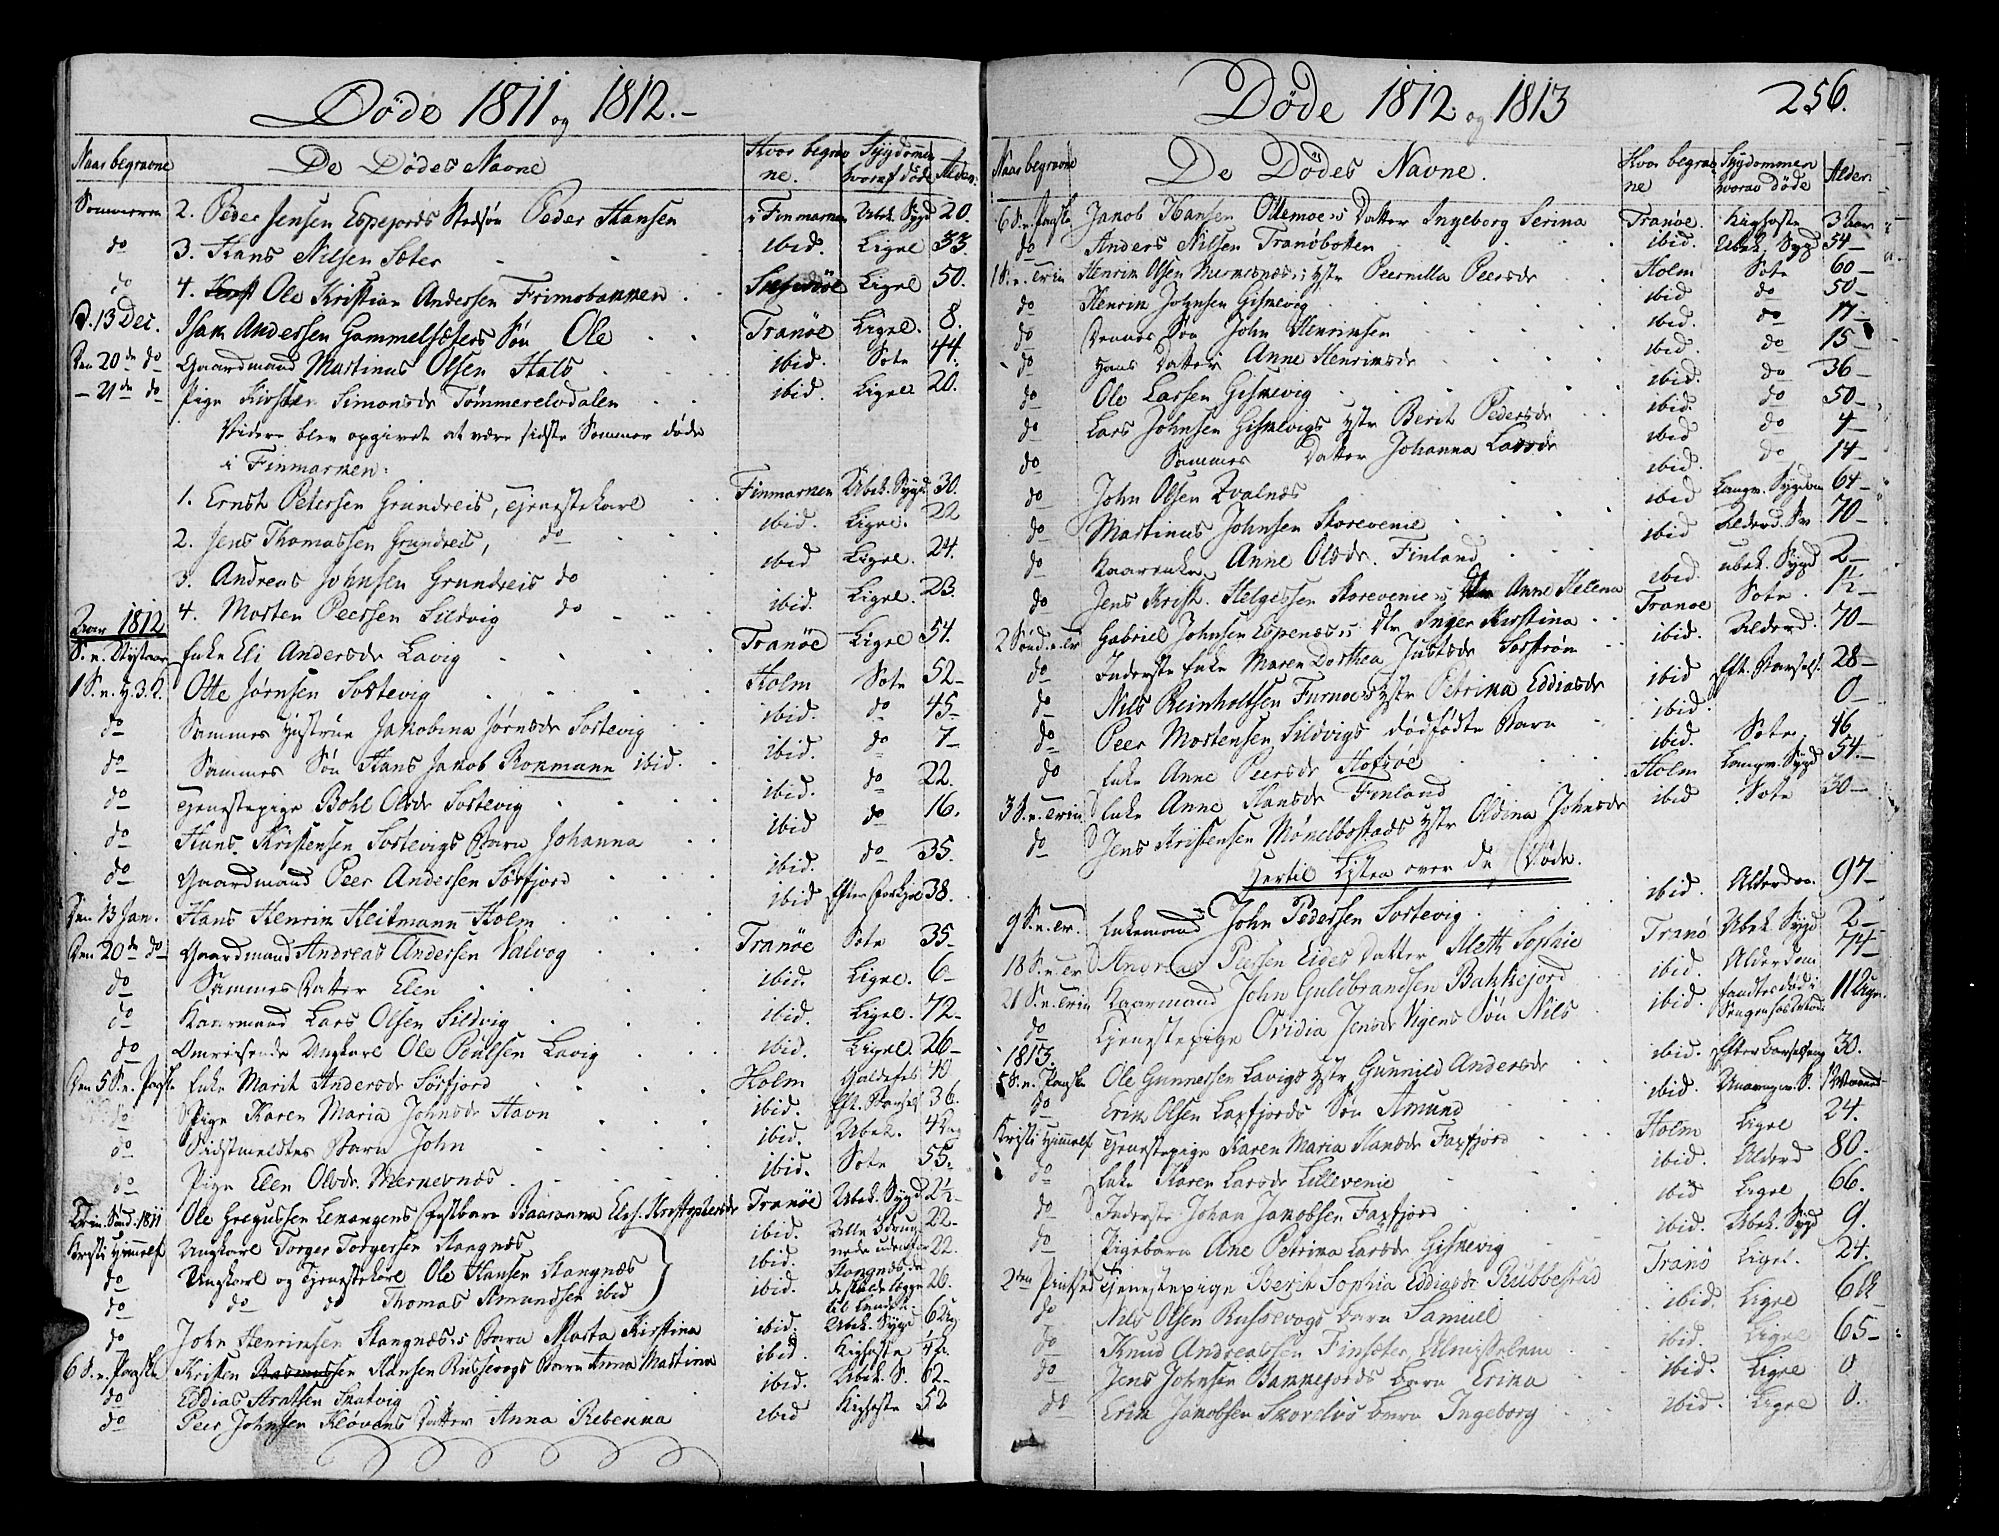 Døde 1811 og 1812.
Naar begravne De Dødes Navne Hvor begravne. Sygdommen hvoraf døde Alder.
Sommeren 2. Peder Jensen Espejords Stedsøn Peder Hansen i Finmarken Ubek. Sygd 20.
do 3. Hans Nilsen Sæter ibid. Ligel 33.
do 4. Ole Kristian Andersen Trimobakken Ligel 50.
d. 13 Dec. Isak Andersen Gammelsæters Søn Ole Tranöe Ligel. 8.
Den 20de do Gaardmand Martinus Olsen Hals ibid. Sote 44.
- 21de do Pige Kirsten Simonsdr Tømmerelvdalen ibid. Ligel 20.
Videre blev opgivet at være sidste Sommer døde
i Finmarken:
1. Ernst Petersen Grundreis, Tjenestekarl Finmarken Ubek. Sygd 30.
2. Jens Thomassen Grundreis, do ibid. Ligel. 22
3. Andreas Johnsen Grundreis do ibid Ligel. 24.
4. Morten Peersen Sildvig do ibid. Ligel. 23.
Aar 1812
S. e. Nytaar Enke Eli Andersdr Lavig Tranöe Ligel 54.
1 S. e. H. 3. K. Otte Jørnsen Sortevig Holm Sote 52-
do Sammes Hustrue Jakobina Jørnsdr Sortevig ibid. do 45-
do Sammes Søn Hans Jakob Rokmann ibid. ibid. do 7-
do Tjenestepige Bohl Olsdr Sortevig ibid. do 22.
do Hans Kristensen Sortevigs Barn Johanna ibid do 16.
do Gaardmand Peer Andersen Sørfjord ibid. do 35.
Den 13 Jan. Hans Henrik Heitmann Holm ibid 38.
Den 20de do Gaardmand Andreas Andersen Valvog Tranöe Sote 35-
do Sammes Datter Elen ibid. Ligel. 6-
do Kaarmand Lars Olsen Sildvig ibid. Ligel. 72-
do Omreisende Ungkarl Ole Poulsen Lavig ibid. Ligel. 26-
Den 5 S. e. Paaske Enke Marit Andersdr Sörfjord Holm 40
do Pige Karen Maria Johnsdr Havn ibid. Eft. Barsels 36.
do Sidstmeldtes Barn John ibid. Ubek.
do Pige Elen Olsdr. Mernesnæs ibid. Sote 55-
Trin. Sønd. 1811 Ole Gregussen Lenangens Tranöe Ubek. Sygd 2½-
Kristi Himmelf Ungkarl Torger Torgersen Stangnæs ibid. Alle Drunk- 22-
do Ungkarl og Tjenestekarl Ole Hansen Stangnæs ibid. nede udenfor 22.
do do do Thomas Amundsen ibid ibid. Stangnæs, da de skulde lægge til Landet. 26.
do John Henriksen Stangnæs's Barn Marta Kirstina ibid. Ubek. Sygd
6 S. e. Paaske Kristen Hansen Russevogs Barn Anna Martina ibid Kighoste
do Eddias Aratsen Skatvig ibid. Ubek. S. 82-
do Peer Johnsen Kløvens Datter Anna Rebekka ibid Kighoste
Døde 1812. og 1813 256.
Naar begravne De Dødes Navne. Hvor begravne Sygdommen hvorav døde Alder.
6 S. e. Paaske Jakob Hansen Ottemoe's Datter Ingeborg Serina Tranöe. Kighoste 3 Aar
do Anders Nilsen Tranöbotten ibid. Ubek. Sygd 54-
1 S. e. Trin Henrik Olsen Mernesnæs's Hstr Peernilla Peersdr Holm Sote 60-
do Henrik Johnsen Gisnevig ibid do 50-
do Dennes Søn John Henriksen ibid. do 17-
do Hans Datter Anne Henriksdr ibid. do 15-
do Ole Larsen Gisnevig ibid. do 36-
do Lars Johnsen Gisnevigs Hstr Berit Pedersdr ibid. do 50-
do Sammes Datter Johanna Larsdr ibid do 4-
do John Olsen Kvalnes ibid. do 14-
do Martinus Johnsen Skorevenie ibid Langv. Sygdom 64-
do Kaarenke Anne Olsdr. Finland ibid Alderd. 70-
do Jens Krist. Helgesen Skorevenie's Dtr Anne Helena ibid. ubek. Sygd 2-
2 Sønd. e. Tr Gabriel Johnsen Espenæs's Dtr Inger Kirstina Tranoe Sote. 1½-
do Inderste Enke Maren Dorthea Justsdr Sørstrøm ibid. Alderd. 70-
do Nils Reinholtsen Furnæs Hstr Petrina Eddiasdr ibid Eft. Barsels 28-
do Peer Mortensen Sildvigs dødfødte Barn ibid. 0-
do Enke Anne Peersdr Hofsøe ibid. Sote 46
3 S. e. Trin Enke Anne Hansdr Finland Holm Langv. Sygd 54.-
do Jens Kristensen Mønelbostads Hstr Oldina Johnsdr ibid Sote 30-
Hertil Listen over de Døde.
9 S. e. Tr. Enkemand John Pedersen Sortevig ibid. Alderdom. 97-
18 S. e. Tr Andreas Peersen Eides Datter Meth Sophie Tranö Ubek. Sygd 2-
21 S. e. Trin Kaarmand John Guldbrandsen Bakkejord ibid. Alderdom 74-
do Tjenestepige Ovidia Jensdr Vigens Søn Nils ibid. fandtes död i Sengen hos 11 Uger.
1813.
5 S. e. Paaske Ole Gunnersen Lavigs Hstr Gunnild Andersdr ibid. Efter Barselseng 30.
do Erik Olsen Laxfjords Søn Amund ibid.
Kristi Himmelf Tjenestepige Karen Maria Hansdr Faxfjord Holm Ligel 24.
do Enke Karen Larsdr Lillevenie ibid. Alderd 80.
do Inderste Johan Jakobsen Faxfjord ibid Ligel 66.
do Pigebarn Ane Petrina Larsdr Gisnevig ibid. Ubek. Sygd 9.
2den Pintsed Tjenestepige Berit Sophia Eddiasdr Rubbestad Tranö Ligel. 24.
do Nils Olsen Russevogs barn Samuel ibid. Ligel
do Knud Andreassøn Finsæter, Almisselem ibid. Ligel 65-
do Jens Johnsen Bakkejords barn Erika ibid. Ligel 0
do Erik Jakobsen Skordvs barn Ingeborg ibid. Ligel 0.